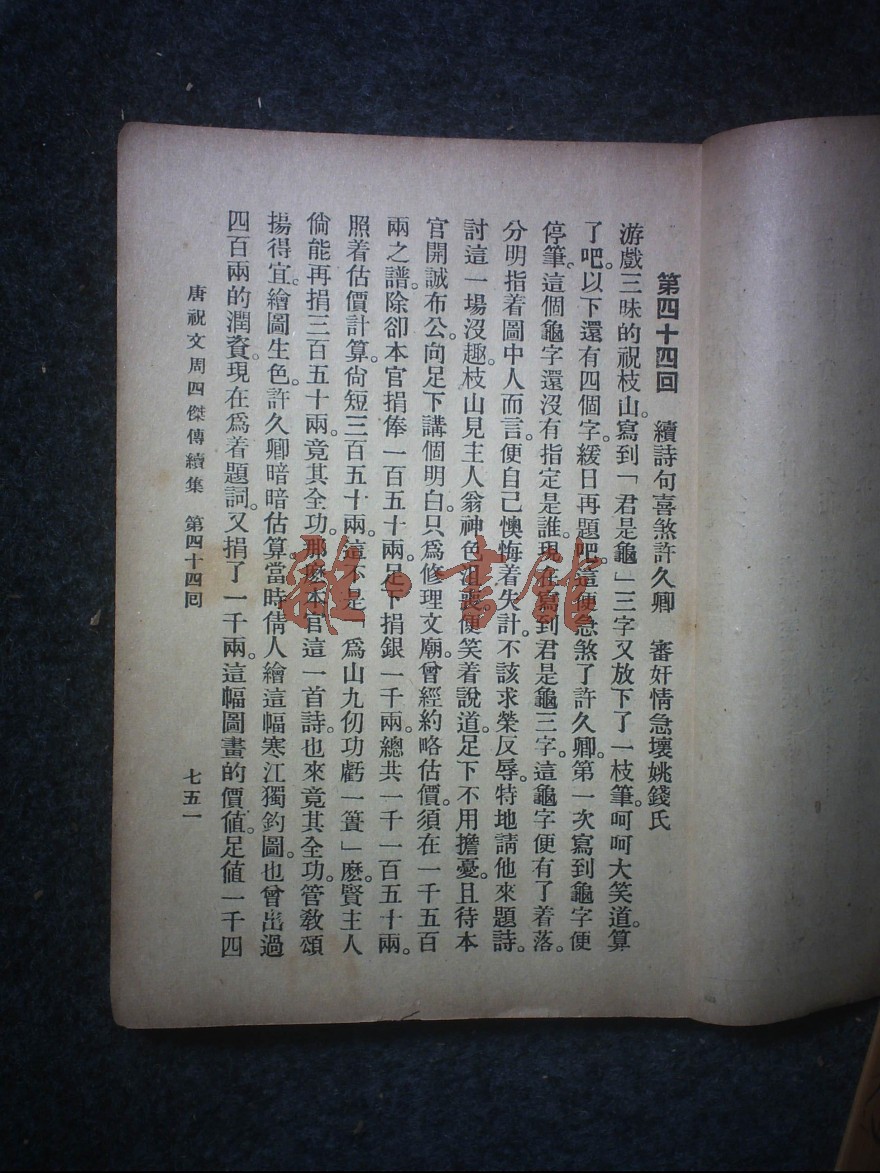 第四十四回　續詩句喜煞許久卿　審奸情急壞姚錢氏
游戲三昧的祝枝山。寫到「君是龜」三字又放下了一枝筆。呵呵大笑道。算
了吧。以下還有四個字。緩日再題吧。這便急煞了許久卿。第一次寫到龜字便
停筆。這個龜字還沒有指定是誰。現在寫到君是龜三字。這龜字便有了着落。
分明指着圖中人而言。便自己懊悔着失計。不該求榮反辱。特地請他來題詩。
討這一場沒趣。枝山見主人翁神色沮喪。便笑着說道。足下不用擔憂。且待本
官開誠布公。向足下講個明白。只爲修理文廟。曾經約略估價。須在一千五百
兩之譜。除卻本官捐俸一百五十兩。足下捐銀一千兩。總共一千一百五十兩。
照着估價計算。尙短三百五十兩。這不是　爲山九仞功虧一簣」麽。賢主人
倘能再捐三百五十兩。竟其全功。那麽本官這一首詩。也來竟其全功。管教頌
揚得宜。繪圖生色。許久卿暗暗估算。當時倩人繪這幅寒江獨釣圖。也曾出過
四百兩的潤資。現在爲着題詞。又捐了一千兩。這幅圖畫的價値。足値一千四
唐祝文周四傑傳續集　第四十四回　七五一
雜·書館